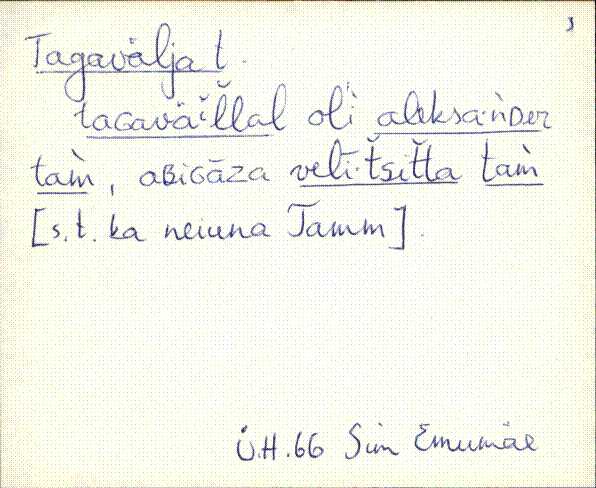 3
Tagavälja t.
taGaväĭl̆lal oĺi aleksa·ǹDer
tam̀, aBiGāza veĺi·t̆sit̆ta tam̀
[s.t. ka neiuna Tamm].
Ü.H. 66 Sim Emumäe